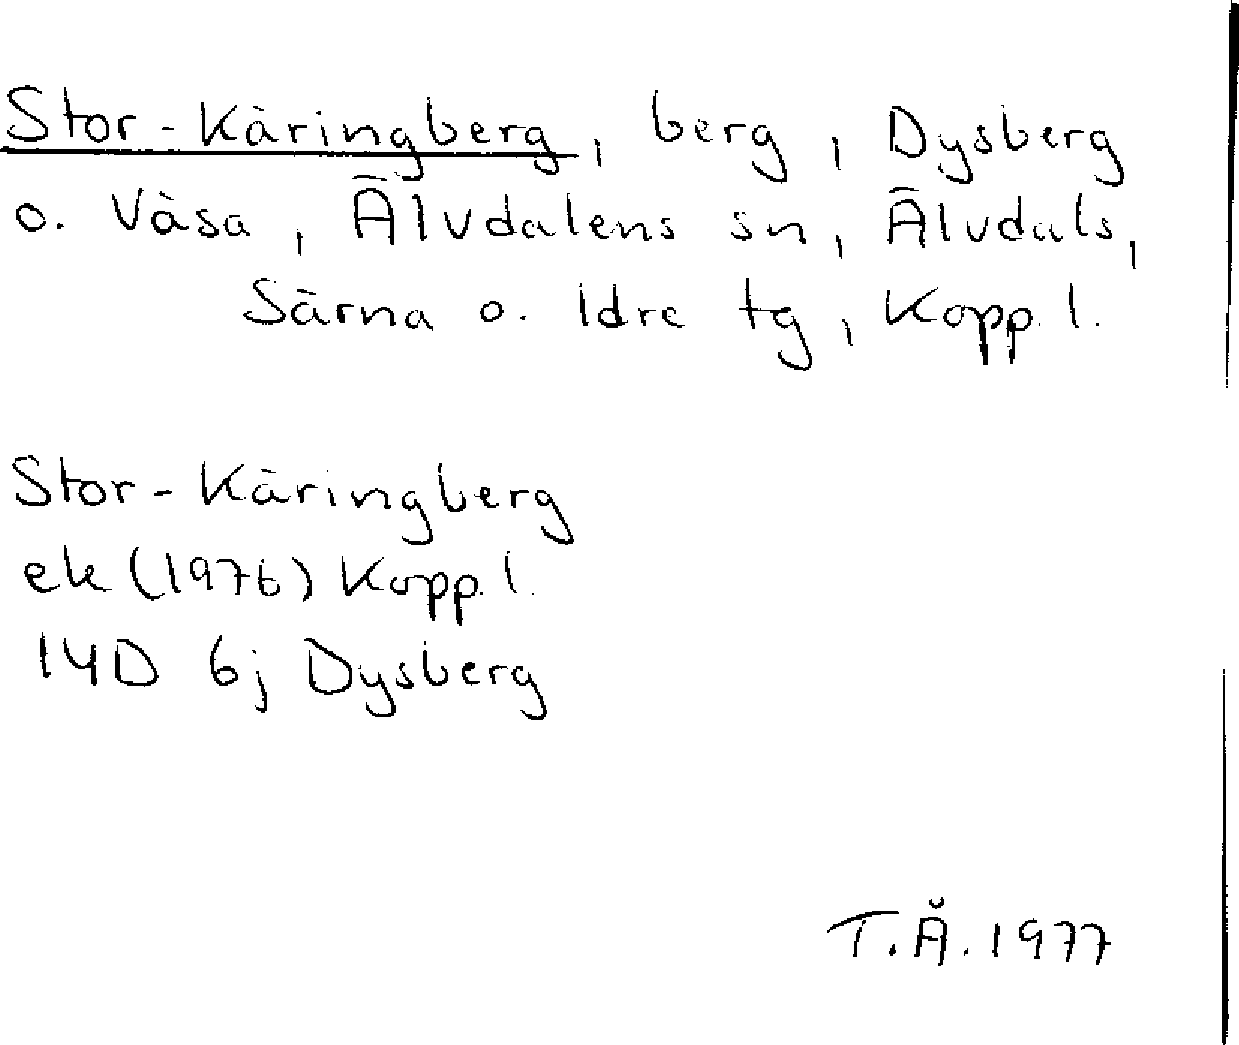 Stor-Käringberg, berg, Dysberg
o. Våsa, Älvdalens sn, Älvdals,
Särna o. Idre tg, Kopp. l.
Stor-Käringberg
ek (1976) Kopp. l.
14D 6j Dysberg
T.Å. 1977